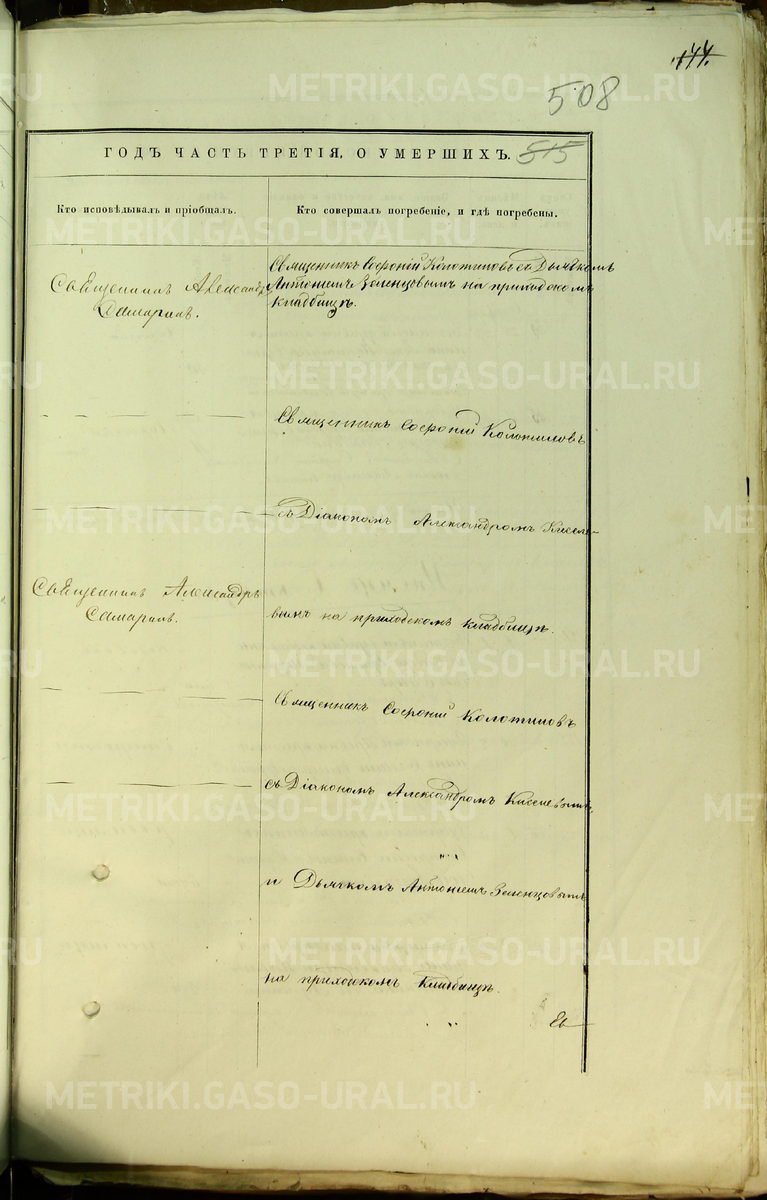 144.
508
ГОДЪ ЧАСТЬ ТРЕТІЯ, О УМЕРШИХЪ. 515
Кто исповѣдывалъ и пріобщалъ.
Кто совершалъ погребеніе, и гдѣ погребены.
Священникъ Александръ
Самаринъ.
Священникъ Софроній Колотиловъ съ Дьячкомъ
Антоніемъ Зеленцовымъ на приходскомъ
кладбищѣ.
Священникъ Софроній Колотиловъ
съ Діакономъ Александромъ Киселе-
Священникъ Александръ
Самаринъ.
вымъ на приходскомъ кладбищѣ.
Священникъ Софроній Колотиловъ
съ Діакономъ Александромъ Киселевымъ,
и Дьячкомъ Антоніемъ Зеленцовымъ
на приходскомъ кладбищѣ.
METRIKI.GASO-URAL.RU